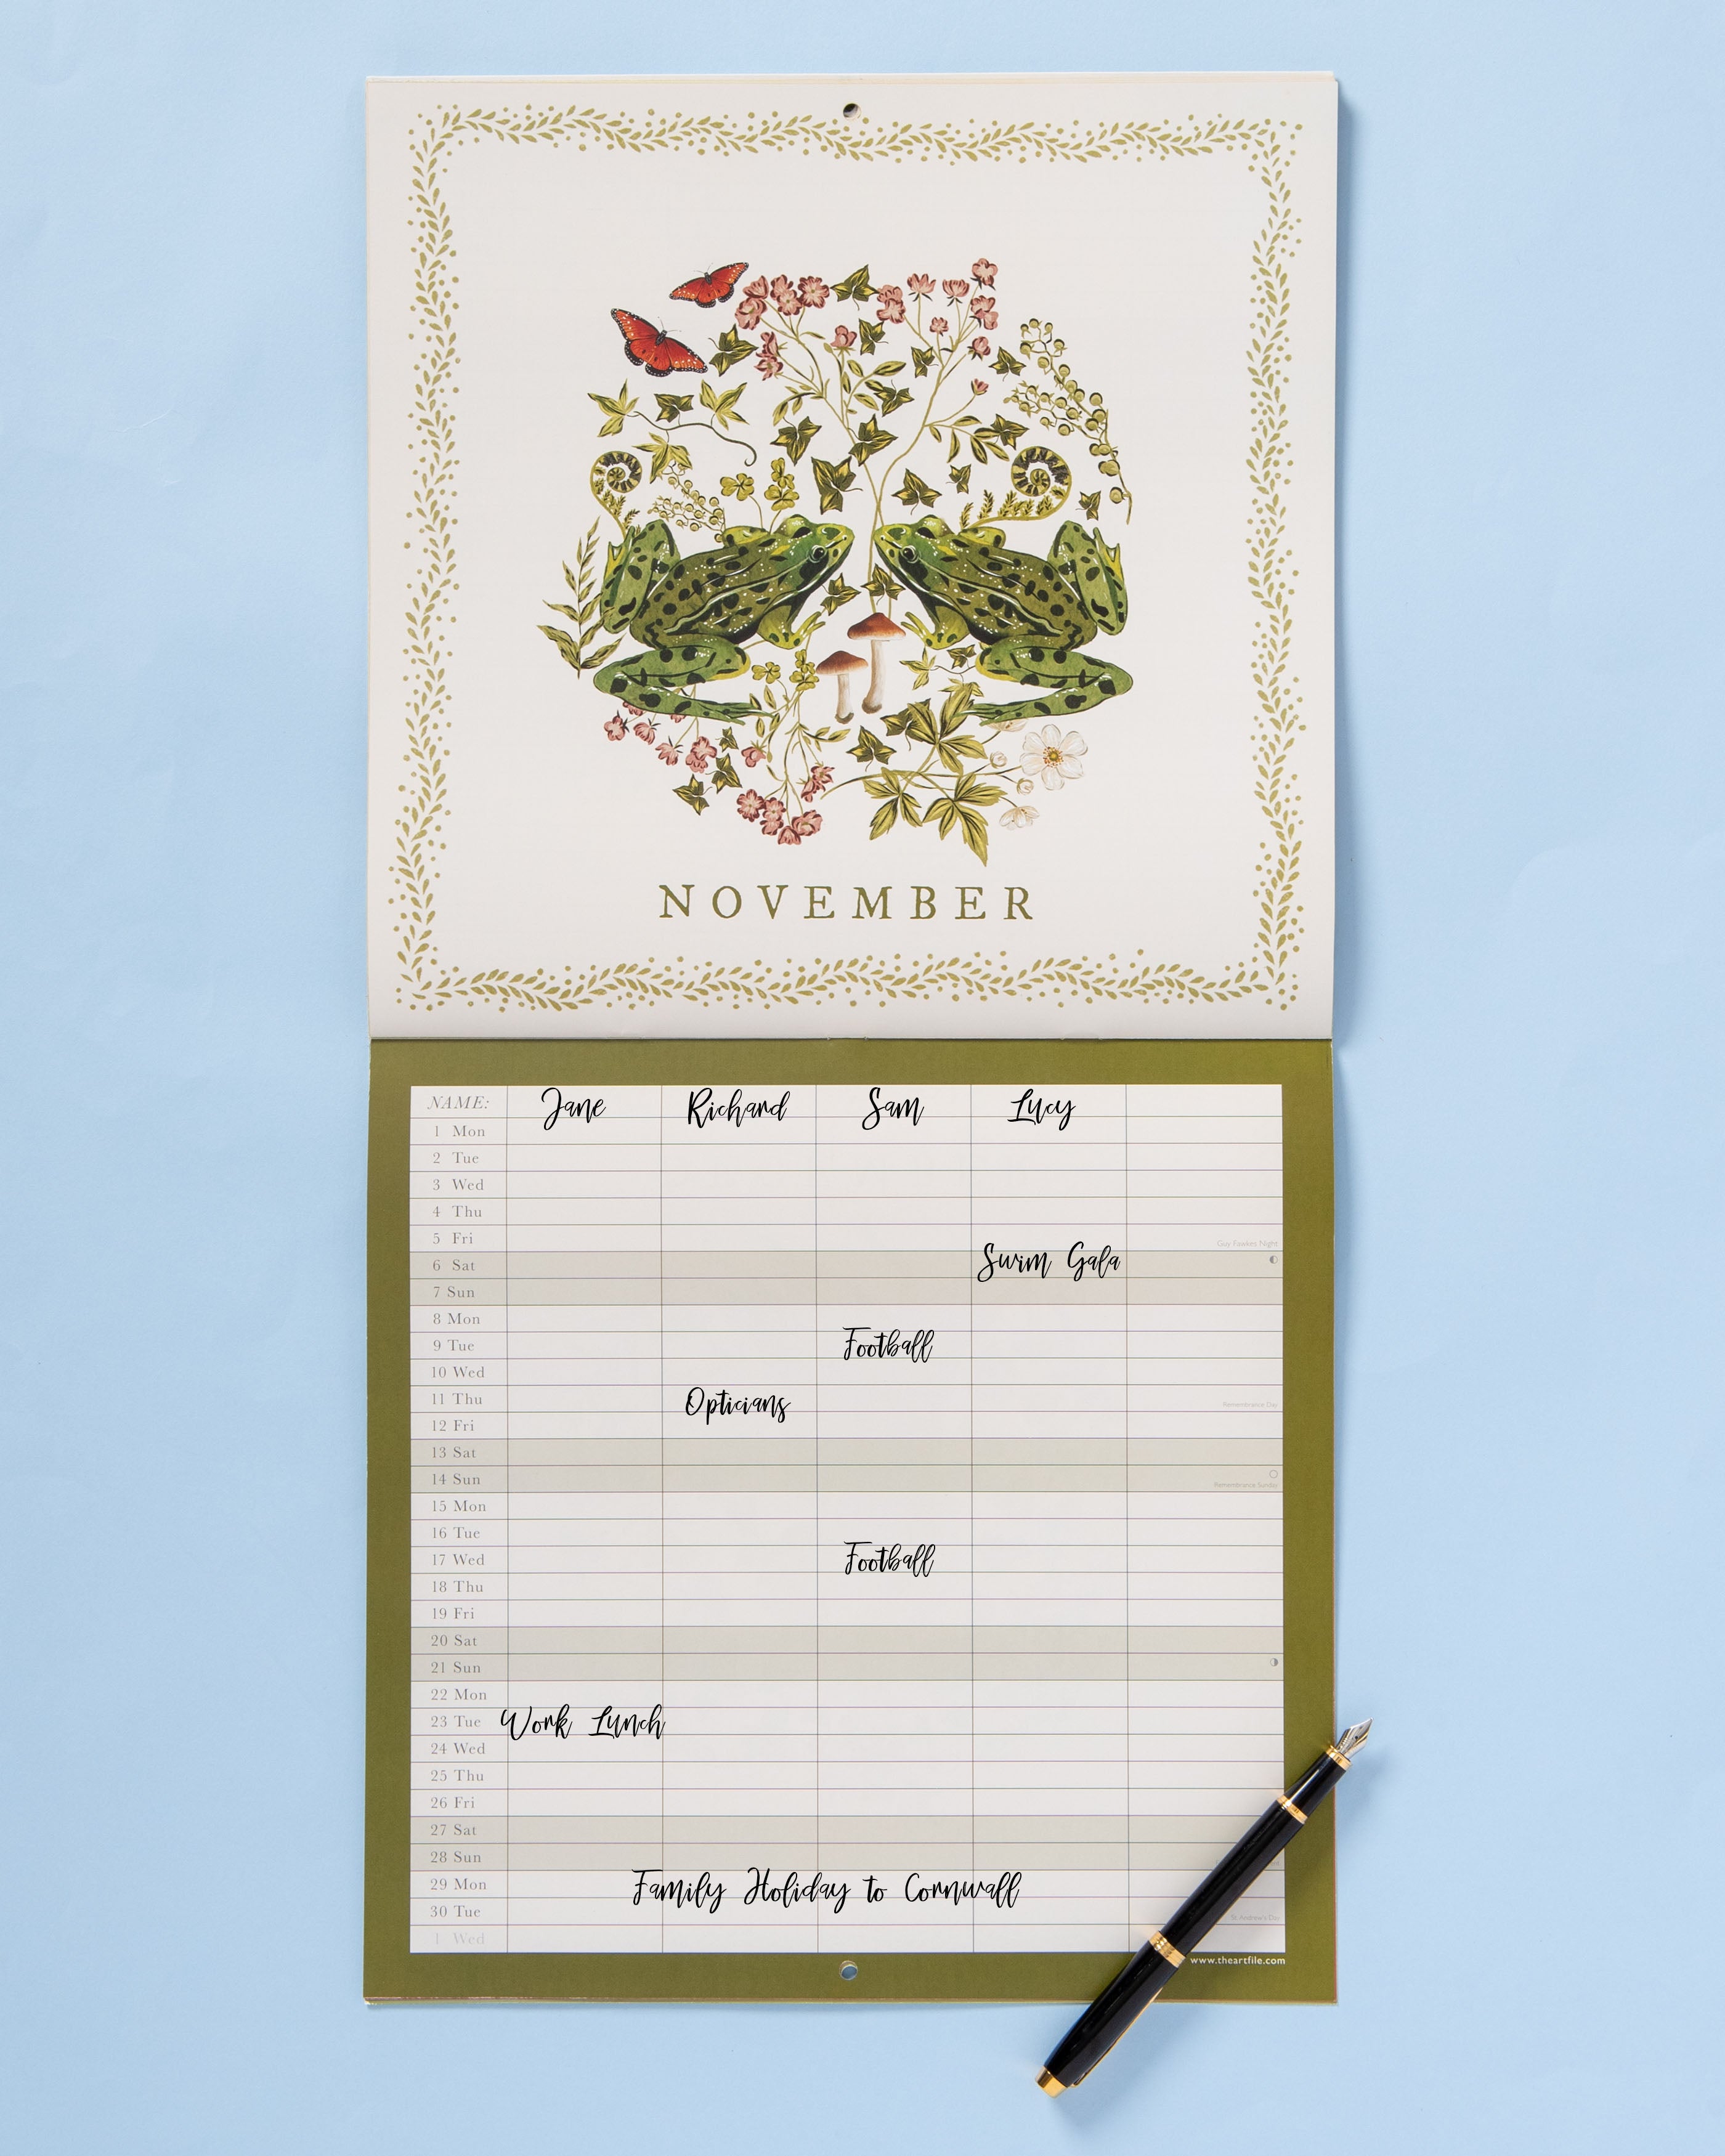 NOVEMBER
NAME: Jane Richard Sam Lucy
1 Mon
2 Tue
3 Wed
4 Thu
5 Fri Guy Fawkes Night
6 Sat Swim Gala
7 Sun
8 Mon
9 Tue Football
10 Wed
11 Thu Opticians Remembrance Day
12 Fri
13 Sat
14 Sun Remembrance Sunday
15 Mon
16 Tue
17 Wed Football
18 Thu
19 Fri
20 Sat
21 Sun
22 Mon
23 Tue Work Lunch
24 Wed
25 Thu
26 Fri
27 Sat
28 Sun
29 Mon Family Holiday to Cornwall
30 Tue St Andrew's Day
1 Wed
www.theartfile.com